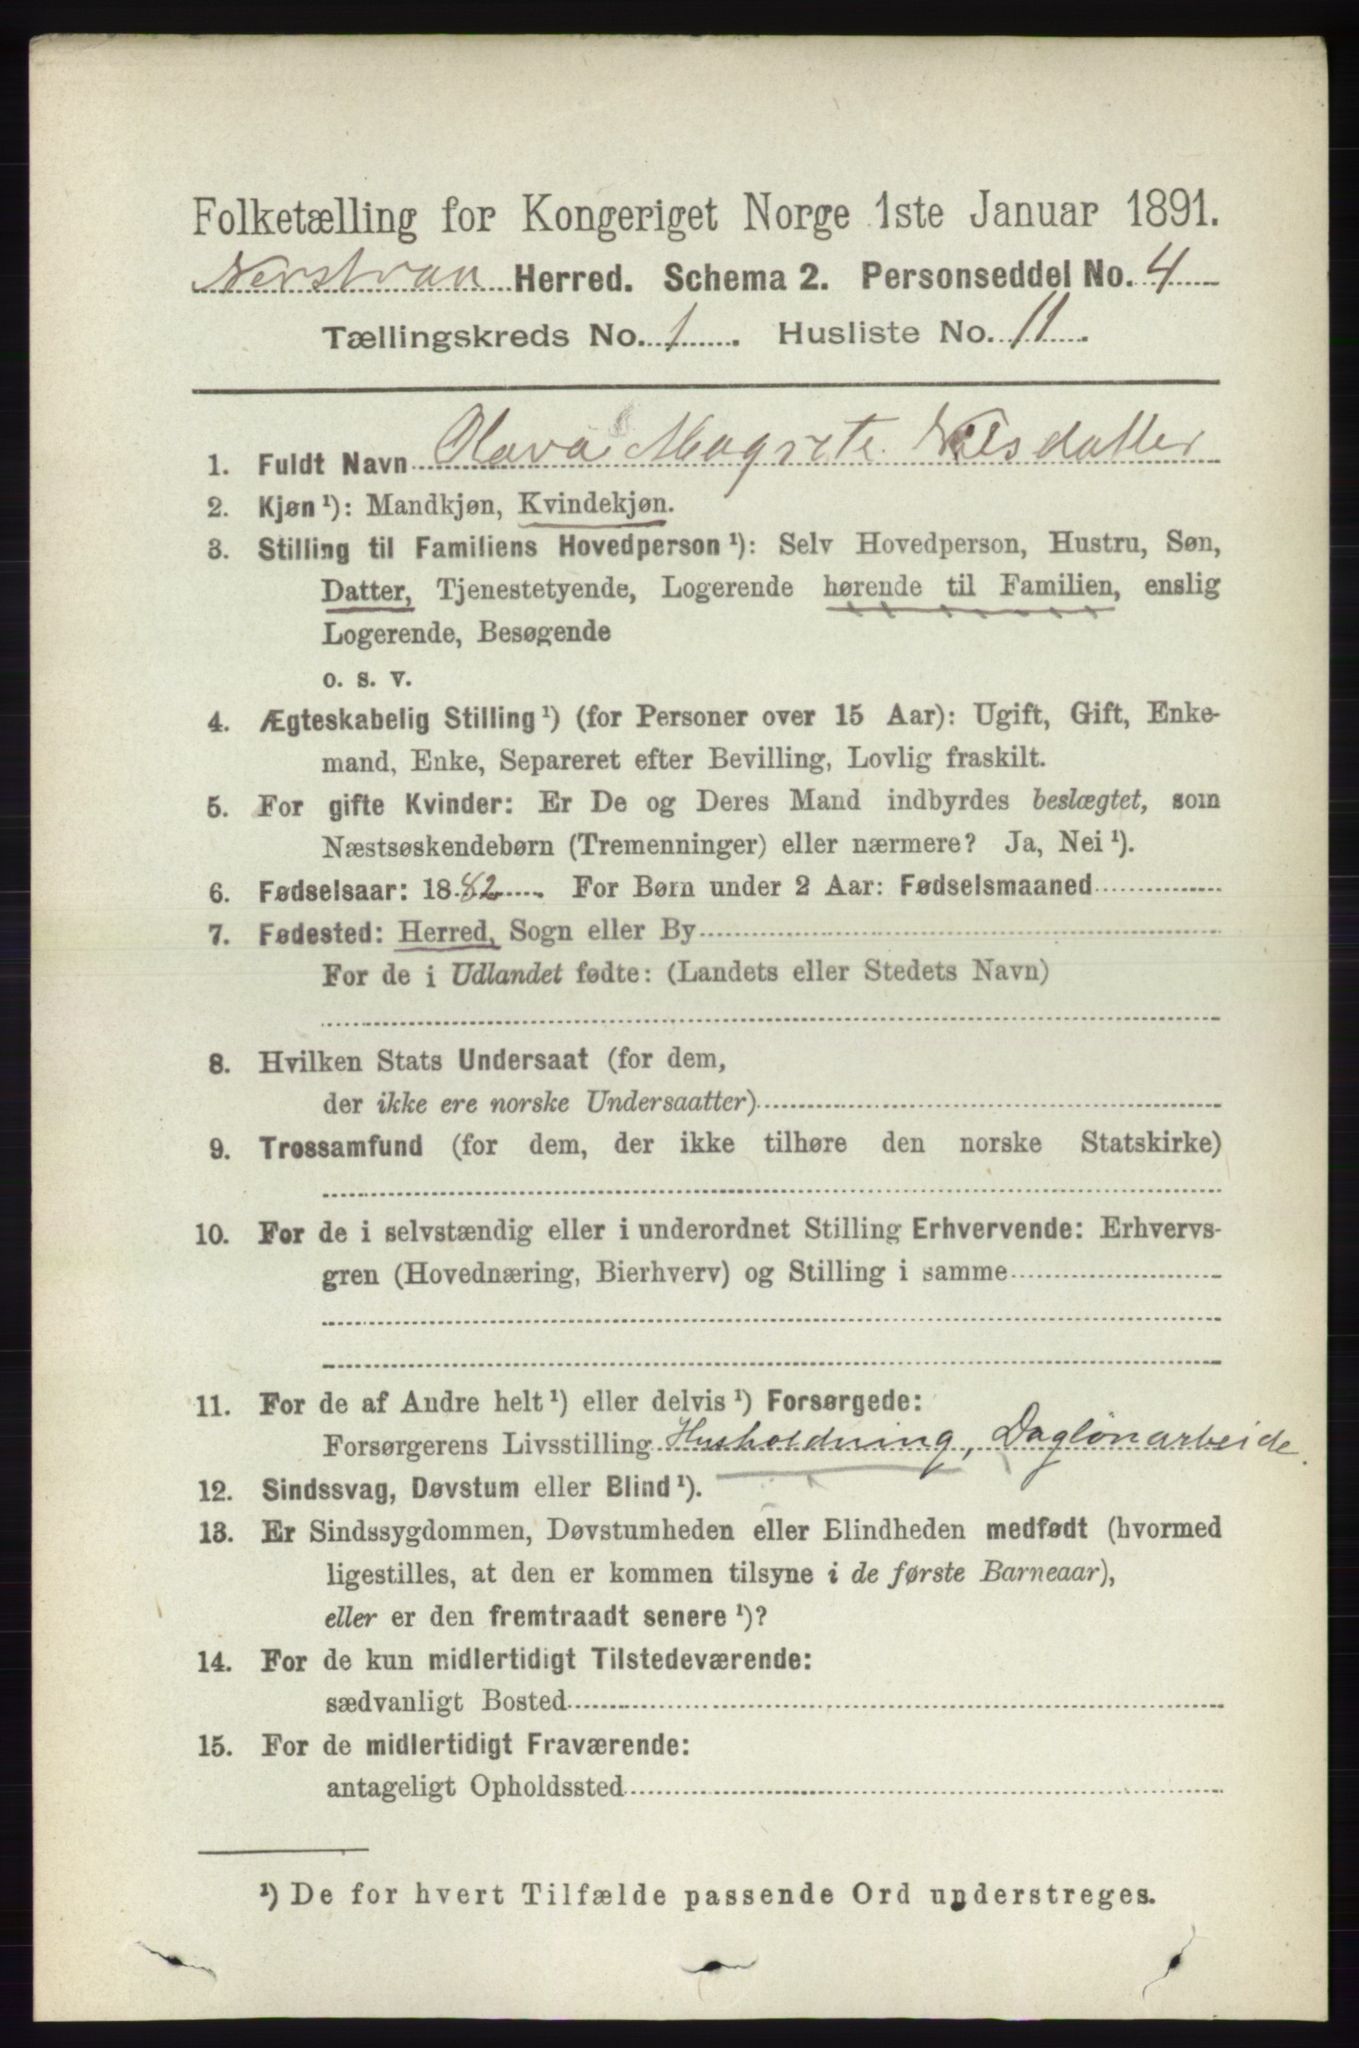 Folketælling for Kongeriget Norge 1ste Januar 1891.
Nerstran Herred. Schema 2. Personseddel No. 4
Tællingskreds No. 1. Husliste No. 11.
1. Fuldt Navn Olava Magrete Nilsdatter
2. Kjøn ¹): Mandkjøn, Kvindekjøn.
3. Stilling til Familiens Hovedperson ¹): Selv Hovedperson, Hustru, Søn,
Datter, Tjenestetyende, Logerende hørende til Familien, enslig
Logerende, Besøgende
o. s. v.
4. Ægteskabelig Stilling ¹) (for Personer over 15 Aar): Ugift, Gift, Enke-
mand, Enke, Separeret efter Bevilling, Lovlig fraskilt.
5. For gifte Kvinder: Er De og Deres Mand indbyrdes beslægtet, som
Næstsøskendebørn (Tremenninger) eller nærmere? Ja, Nei ¹).
6. Fødselsaar: 1882. For Børn under 2 Aar: Fødselsmaaned
7. Fødested: Herred, Sogn eller By
For de i Udlandet fødte: (Landets eller Stedets Navn)
8. Hvilken Stats Undersaat (for dem,
der ikke ere norske Undersaatter)
9. Trossamfund (for dem, der ikke tilhøre den norske Statskirke)
10. For de i selvstændig eller i underordnet Stilling Erhvervende: Erhvervs-
gren (Hovednæring, Bierhverv) og Stilling i samme
11. For de af Andre helt ¹) eller delvis ¹) Forsørgede:
Forsørgerens Livsstilling Husholdning, Daglønarbeide.
12. Sindssvag, Døvstum eller Blind ¹).
13. Er Sindssygdommen, Døvstumheden eller Blindheden medfødt (hvormed
ligestilles, at den er kommen tilsyne i de første Barneaar),
eller er den fremtraadt senere ¹)?
14. For de kun midlertidigt Tilstedeværende:
sædvanligt Bosted
15. For de midlertidigt Fraværende:
antageligt Opholdssted
¹) De for hvert Tilfælde passende Ord understreges.